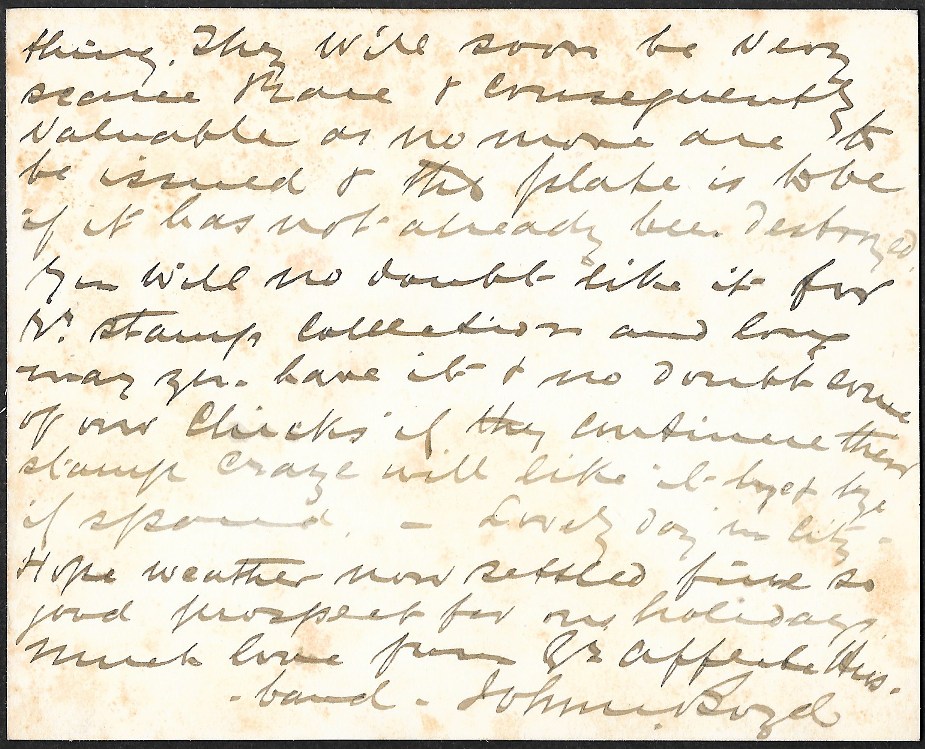 thing. They will soon be very
scarce & rare & consequently
valuable as no more are to
be issued & the plate is to be
if it has not already been destroyed.
You will no doubt like it for
Yr. stamp collection and long
may you have it & no doubt some
of our Chicks if they continue their
stamp craze will like it bye & bye
if spared. - Lovely day in City -
Hope weather now settled fine so
good prospect for our holidays.
Much love from Yr Affecte Hus-
-band - John Boyd